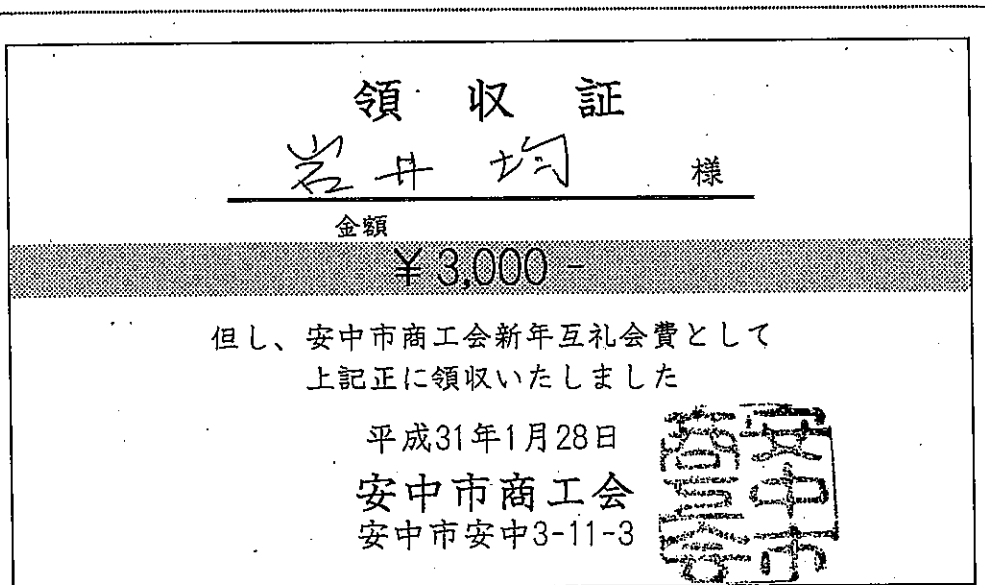 領収証
岩井 均 様
金額
¥3,000-
但し、安中市商工会新年互礼会費として
上記正に領収いたしました
平成31年1月28日
安中市商工会
安中市安中3-11-3
安中市
商工会